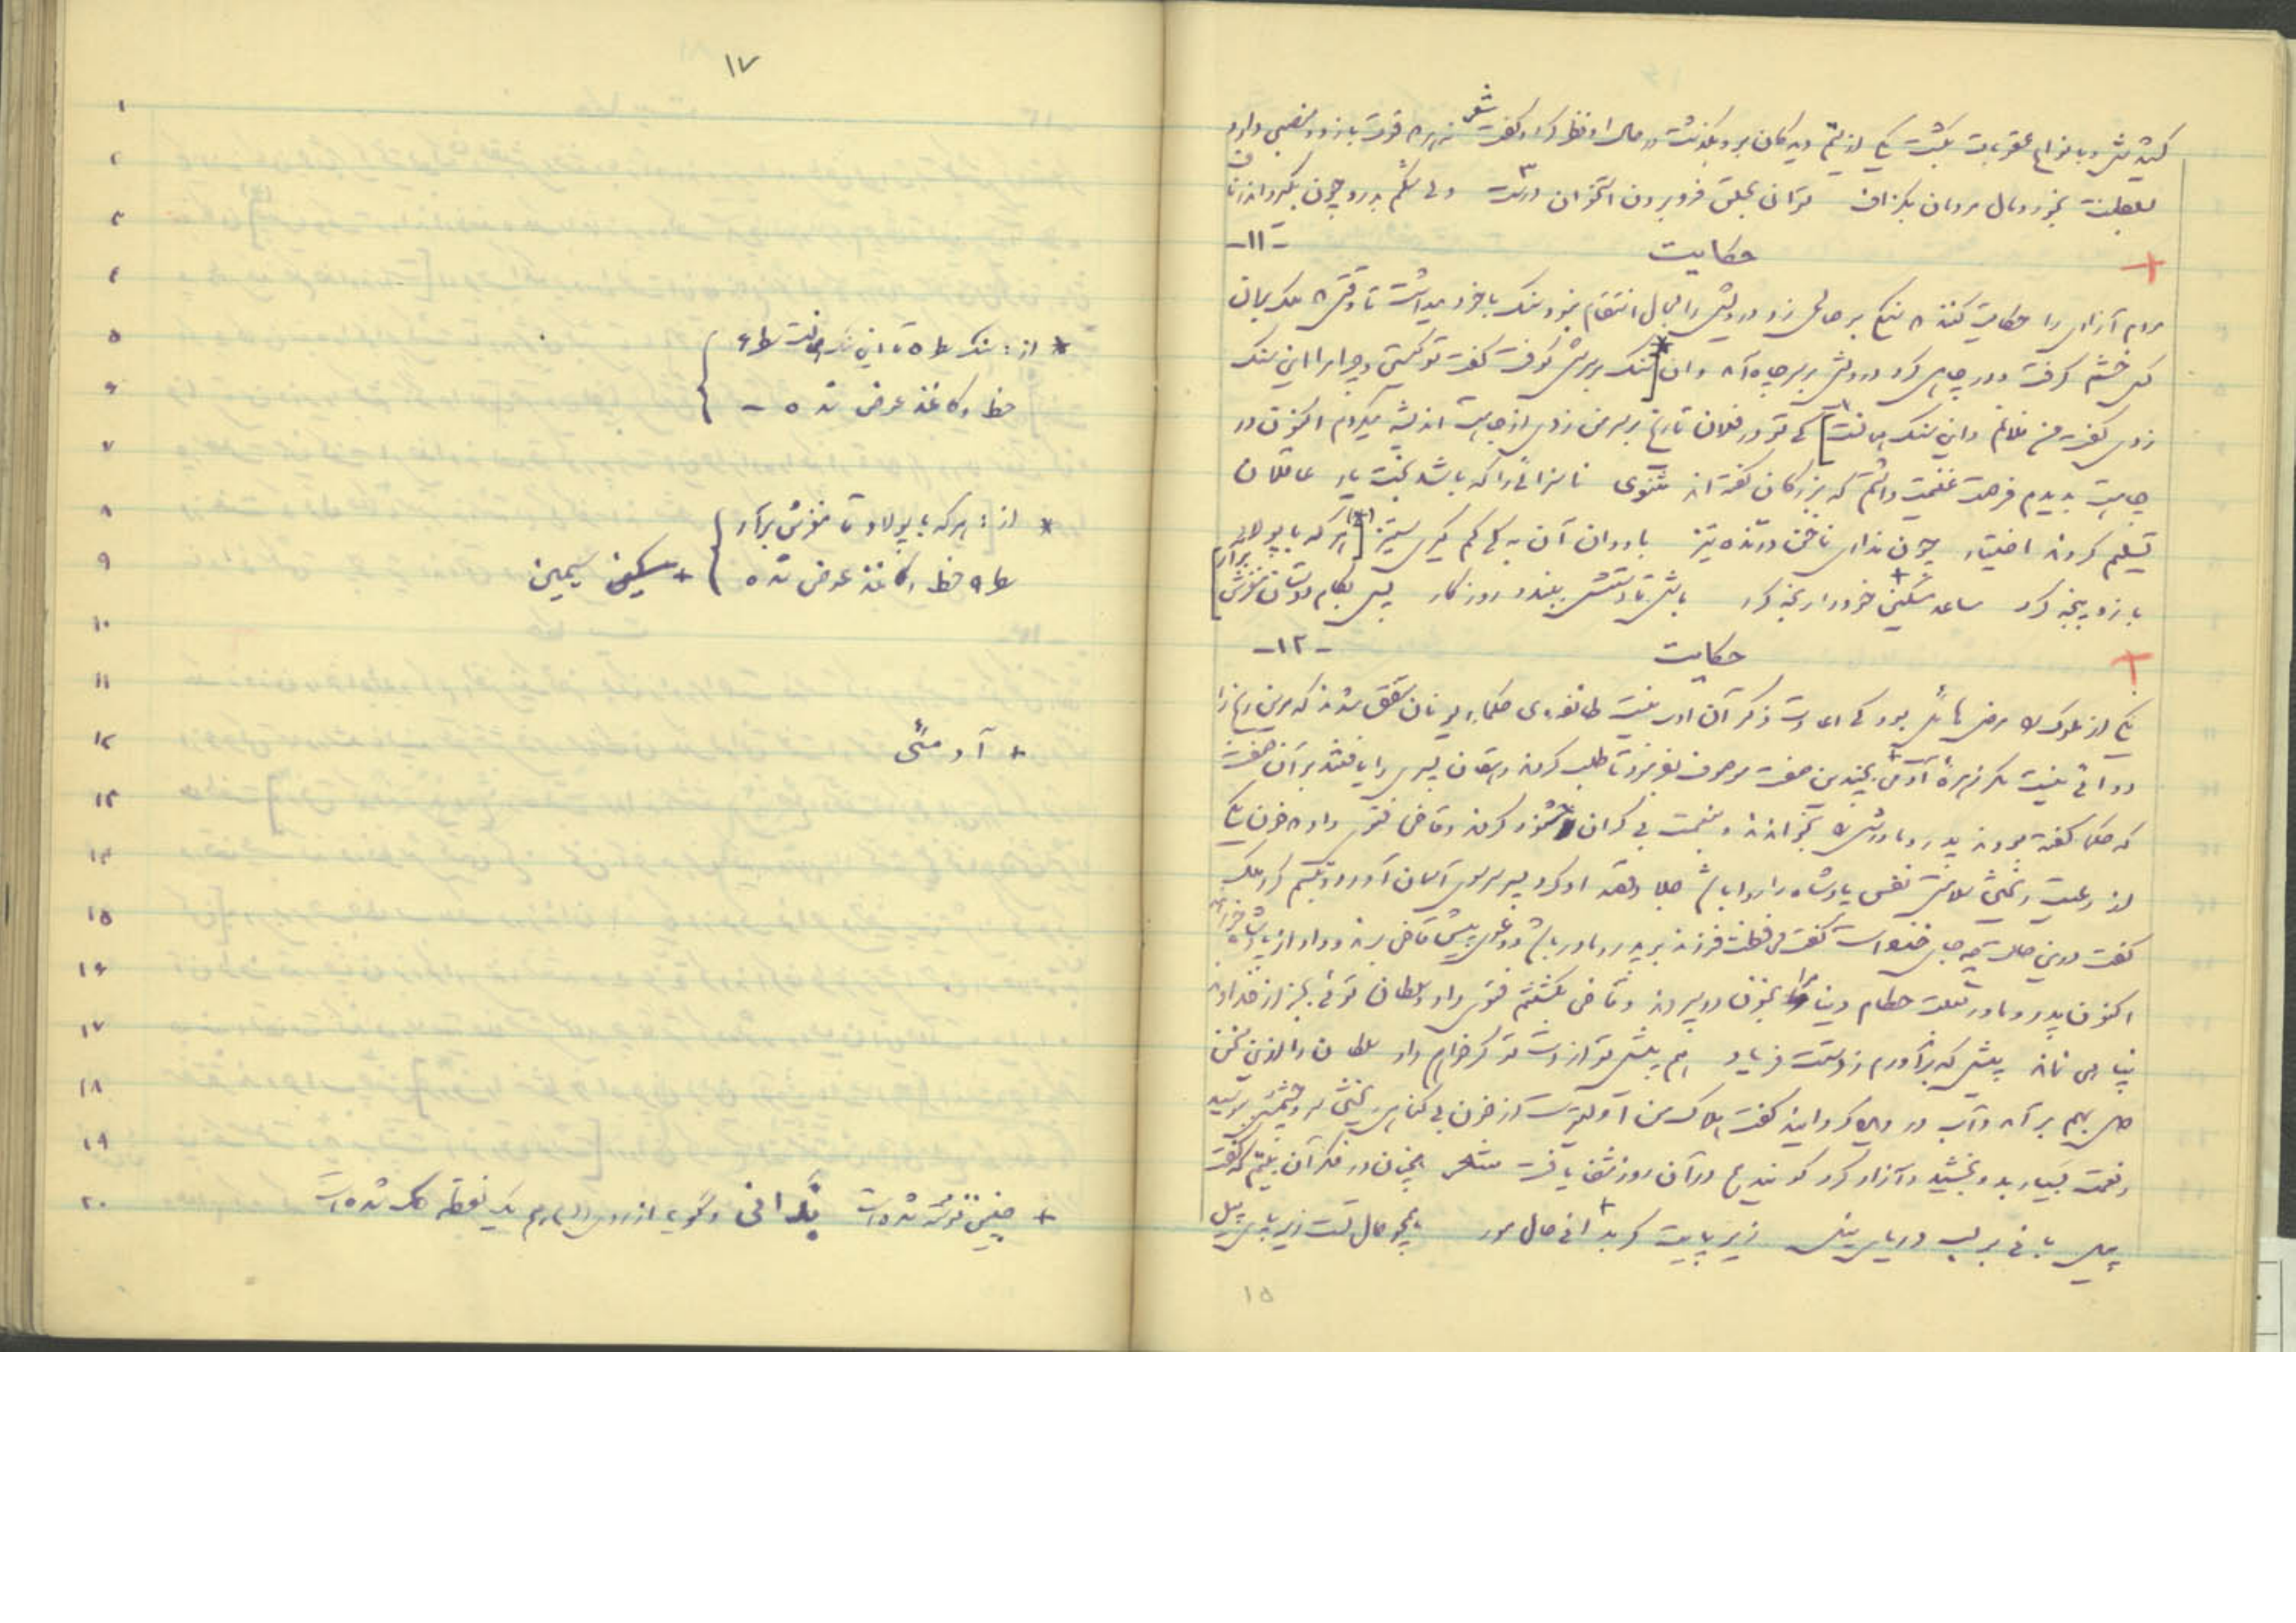 کشیدش و بانواع عقوبات بکشت یکی از ستم دیدگان برو بگذشت در حال او نظر کرد و گفت شعر نه هر که قوت بازو و منصبی دارد
بسلطنت بخورد مال مردمان بگزاف توان بحلق فرو بردن استخوان درشت ولی شکم بدرد چون بگیرد اندر ناف
حکایت -۱۱-
مردم آزاری را حکایت کنند که سنگی بر صالحی زد درویش را مجال انتقام نبود سنگ با خود میداشت تا وقتی که ملک بران
کس خشم گرفت و در چاهی کرد درویش بر سر چاه آمد و آن [سنگ بر سرش کوفت گفت تو کیستی و چرا مرا این سنگ
زدی گفت من فلانم و این سنگ همانست] که تو در فلان تاریخ بر سر من زدی از جاهت اندیشه میکردم اکنون در
چاهت بدیدم فرصت غنیمت دانستم که بزرگان گفته‌اند مثنوی ناسزائی را که باشد بخت یار عاقلان
تسلیم کردند اختیار چون نداری ناخن درنده تیز با ددان آن به که کم گیری ستیز [هر که با پولاد
بازو پنجه کرد ساعد سکین خود را رنجه کرد باش تا دستش ببندد روزگار پس بکام دوستان مغزش برآر]
حکایت -۱۲-
یکی از ملوک را مرضی هائل بود که اعادت ذکر آن اولی نیست طائفه‌ی حکماء یونان متفق شدند که مر این رنج را
دوائی نیست مگر زهرهٔ آدمی بچندین صفت موصوف بفرمود تا طلب کردند دهقان پسری را یافتند بر آن صفت
که حکما گفته بودند پدر و مادرش را بخواندند و بنعمت بی کران خشنود کردند و قاضی فتوی داد که خون یکی
از رعیت ریختن سلامت نفس پادشاه را روا باشد جلاد قصد او کرد پسر سر سوی آسمان آورد و تبسم کرد ملک
گفت درین حالت چه جای خنده است گفت فرزند بر پدر و مادر باشد و دعوی پیش قاضی برند و داد از پادشاه خواهند
اکنون پدر و مادر بعلت حطام دنیا مرا بخون در سپردند و قاضی بکشتنم فتوی داد و سلطان توئی بجز از خداوند
پناهی نماند پیش که برآورم ز دستت فریاد هم پیش تو از دست تو گر خواهم داد سلطان را ازین سخن
دل بهم برآمد و آب در دیده کرد گفت هلاک من اولیترست از خون بی گناهی ریختن سر و چشمش ببوسید
و نعمت بسیار بدو بخشید و آزاد کرد گویند هم در آن روز شفا یافت شعر همچنان در فکر آن بیتم که گفت
پیل بانی بر لب دریای نیل زیر پایت گر بدانی حال مور همچو حال تست زیر پای پیل
۱۵
۱۷
۱
۲
۳
۴
۵ * از: سنگ ط ۵ تا این سنگ همانست ط ۶
۶ خط و کاغذ عوض شده -
۷
۸ * از: هر که با پولاد تا مغزش برآر
۹ ط ۹ خط و کاغذ عوض شده + سکین سیمین
۱۰
۱۱
۱۲ + آدمئی
۱۳
۱۴
۱۵
۱۶
۱۷
۱۸
۱۹
۲۰ + چنین نوشته شده است بدانی و گویا از روی دال هم یک نقطه حک شده است